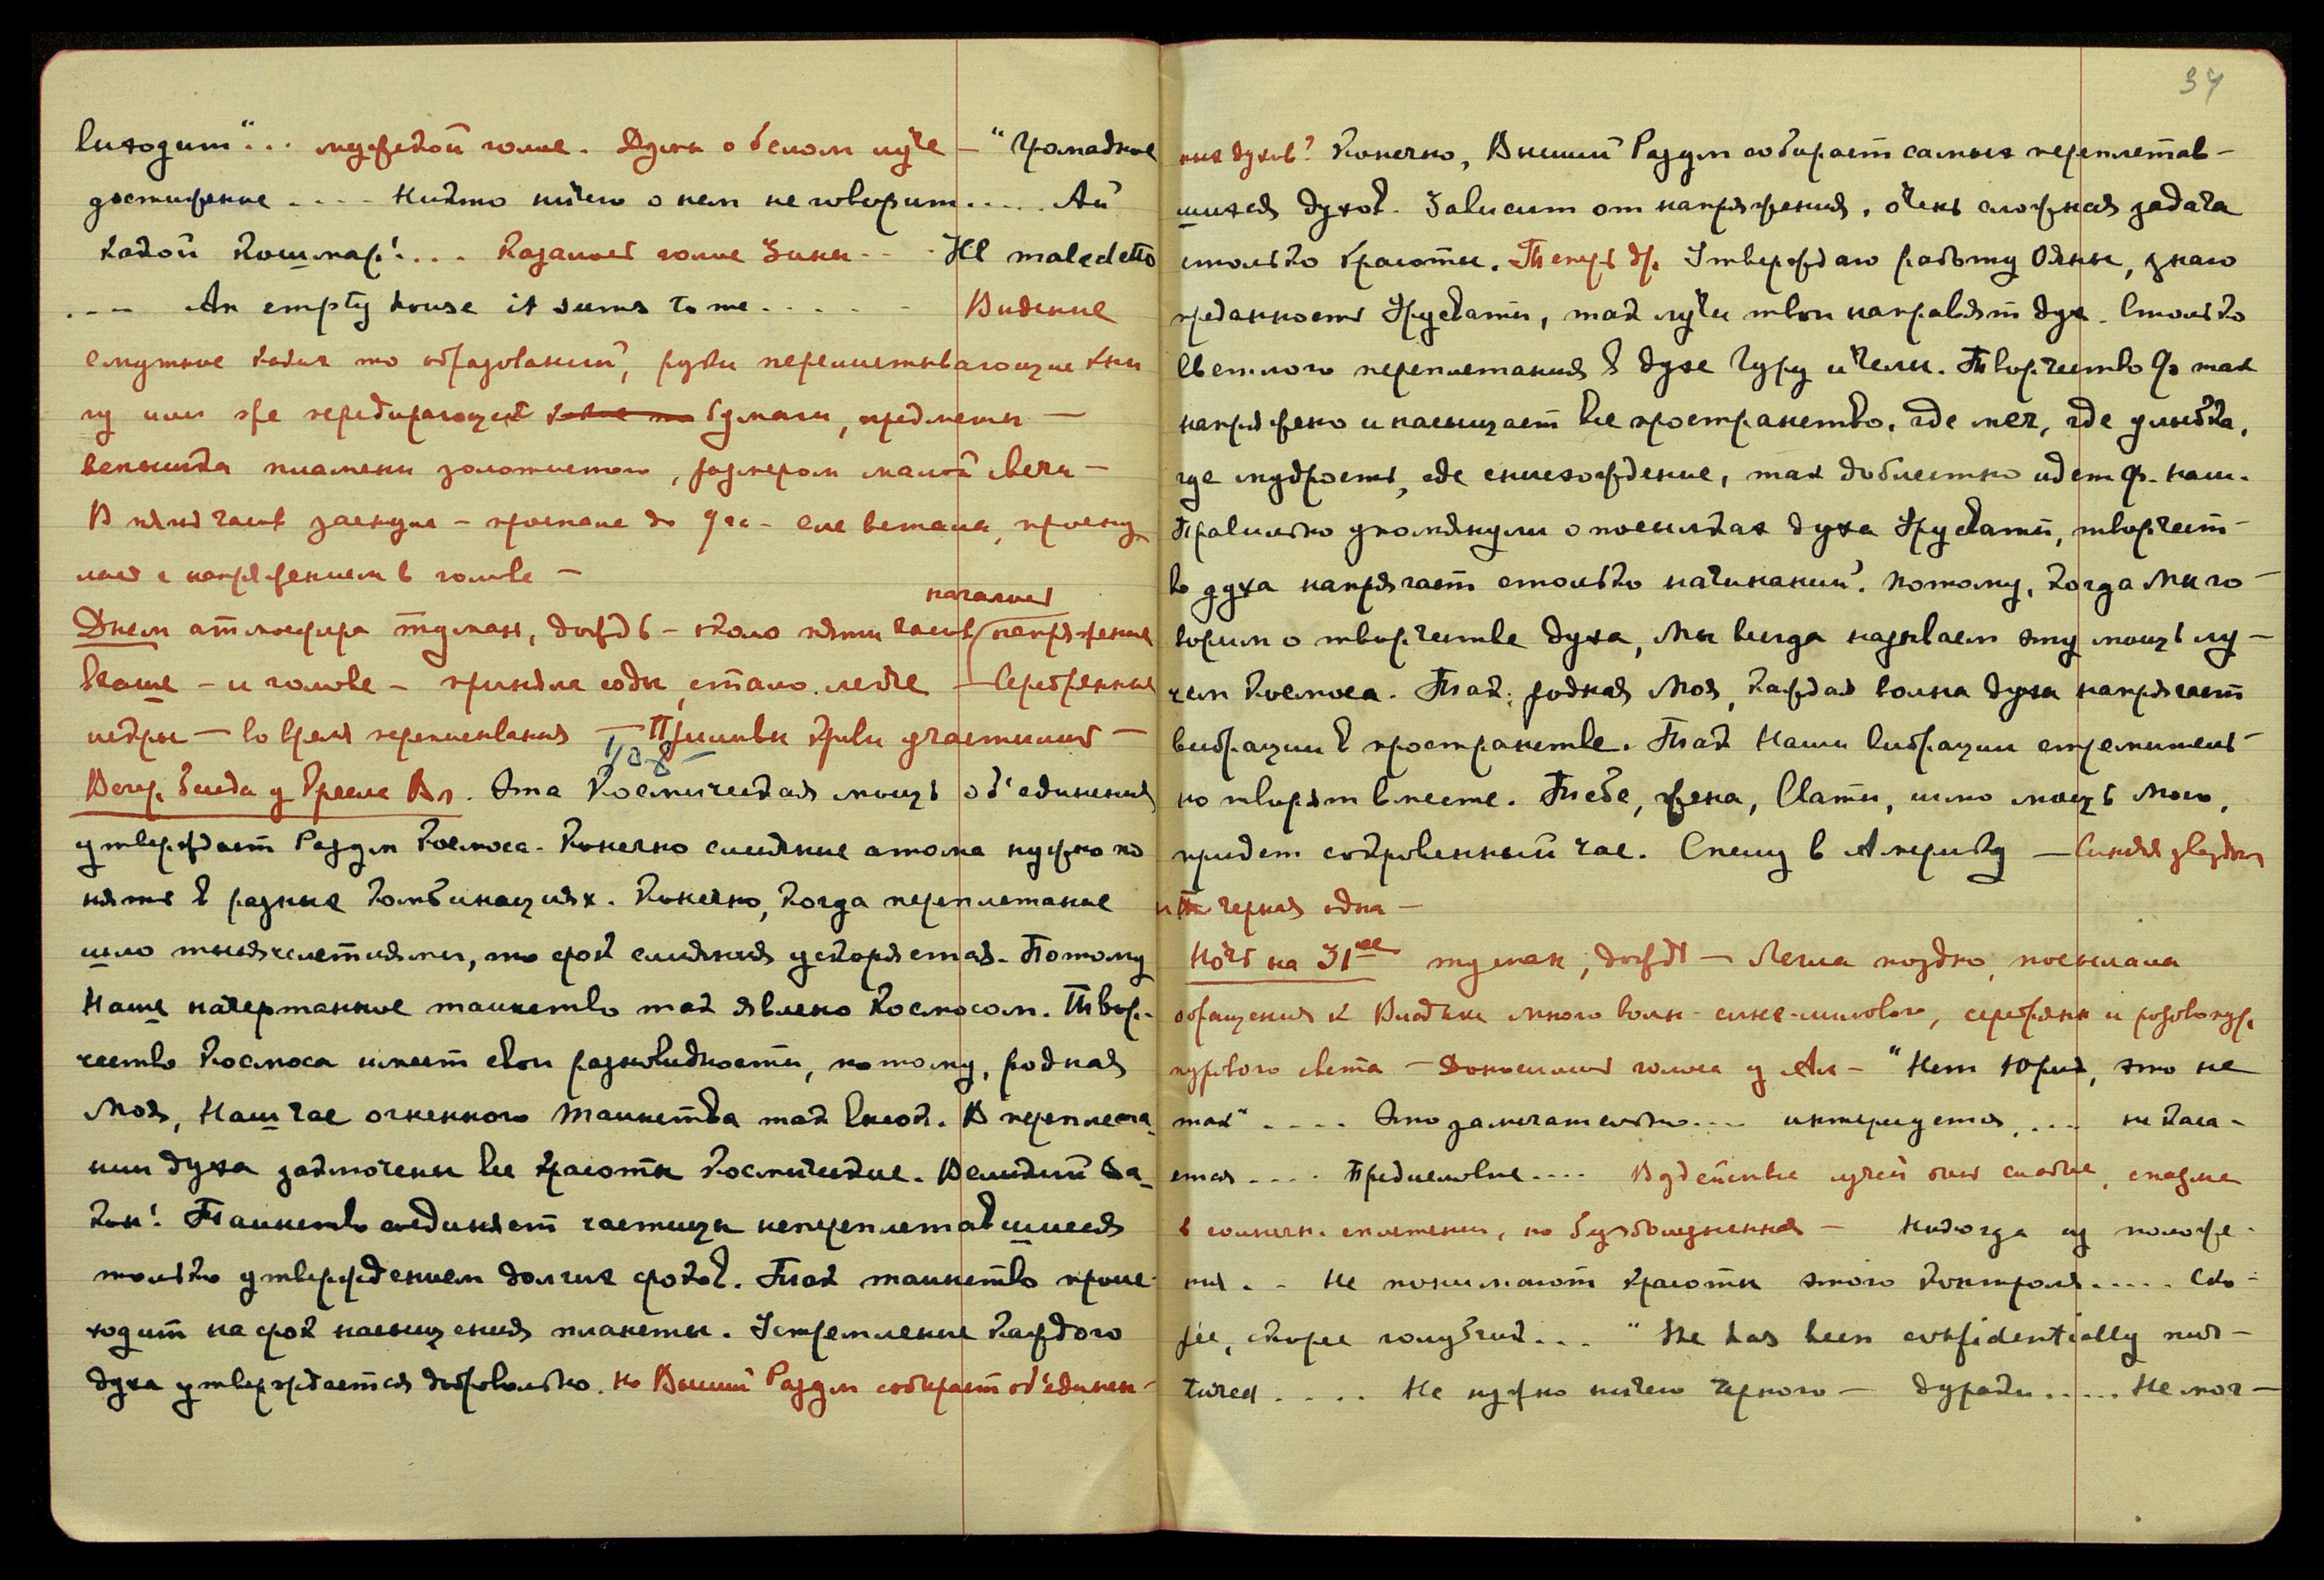 выходит"... мужской голос. Думы о белом луче — "Громадное
достижение .... Никто ничего о нем не говорит..... Ай
какой кошмар!... Казалось голос Зины -- Il maledetto
... An empty house it seems to me...... Видение
смутное каких то образований, руки перелистывающие кни
гу или же перебирающих бумаги, предметы —
вспышка пламени золотистого, размером малой свечи —
В пять часов заснула — проспала до 9 ч. — еле встала, просну
лась с напряжением в голове —
началось
Днем атмосфера туман, дождь — около пяти часов напряжение
в голове — приняла соды, стало легче — Серебрянные
искры — во время переписывания — Приливы крови участились —
Вечер. беседа у Кресла Вл. Эта Космическая мощь об'единения
утверждает Разум Космоса. Конечно слияние атома нужно по
нять в разных комбинациях. Конечно, когда переплетание
шло тысячелетиями, то срок слияния ускоряется. Потому
Наше начертанное таинство так явлено Космосом. Твор-
чество Космоса имеет свои разновидности, потому, родная
Моя, Наш час огненного Таинства так высок. В переплета-
нии духа заключены все красоты Космические. Великий За-
кон! Таинство соединяет частицы непереплетавшиеся
только утверждением долгих сроков. Так таинство проис-
ходит на срок насыщения планеты. Устремление каждого
духа утверждается добровольно. Но Высший Разум собирает об'единен-
37
ных духов? Конечно, Высший Разум собирает самых переплетав-
шихся духов. Зависит от напряжения, очень сложная задача
столько красоты. Теперь др. Утверждаю работу Ояны, знаю
преданность Урусвати, так лучи твои направлят дух. Столько
светлого переплетания в духе Гуру и Чели. Творчество Ф. так
напряжено и насыщает все пространство, где меч, где улыбка,
где мудрость, где снисхождение, так доблестно идет Ф. наш.
Правильно упомянули о посылках духа Урусвати, творчест-
во духа напрягает столько начинаний. Потому, когда Мы го-
ворим о творчестве духа, Мы всегда называем эту мощь лу-
чем Космоса. Так, родная Моя, каждая волна духа напрягает
вибрации в пространстве. Так Наши вибрации стремитель-
но творят вместе. Тебе, жена, Свати, шлю мощь Мою,
придет сокровенный час. Спешу в Америку — Синяя звездочка
и черная одна —
Ночь на 31ое туман, дождь — Легла поздно, посылала
обращения к Владыке много волн — сине-лилового, серебрян и розовопур
пурового света — Доносились голоса у Ал — "Нет Юрий, это не
так" .... Это замечательно.... интересуется.... не каса-
ется .... Предисловие .... Воздействие лучей очень слабые, спазмы
в солнечн. сплетении, но безболезненная — Никогда из положе-
ния .. Не понимают красоты этого контроля..... Ско-
рее, скорее голубчик... "He has been confidentially not-
ticed .... Не нужно ничего черного — дураки..... Не мог —